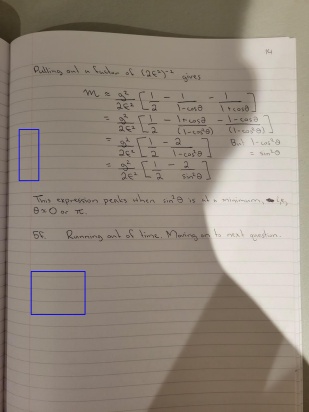 14
Pulling out a factor of (2E²)⁻² gives
M ≈ g²/2E² [ 1/2 - 1/(1-cosθ) - 1/(1+cosθ) ]
= g²/2E² [ 1/2 - (1+cosθ)/(1-cos²θ) - (1-cosθ)/(1-cos²θ) ]
= g²/2E² [ 1/2 - 2/(1-cos²θ) ] But 1-cos²θ = sin²θ
= g²/2E² [ 1/2 - 2/sin²θ ]
This expression peaks when sin²θ is at a minimum, i.e.
θ≈0 or π.
5f. Running out of time. Moving on to next question.